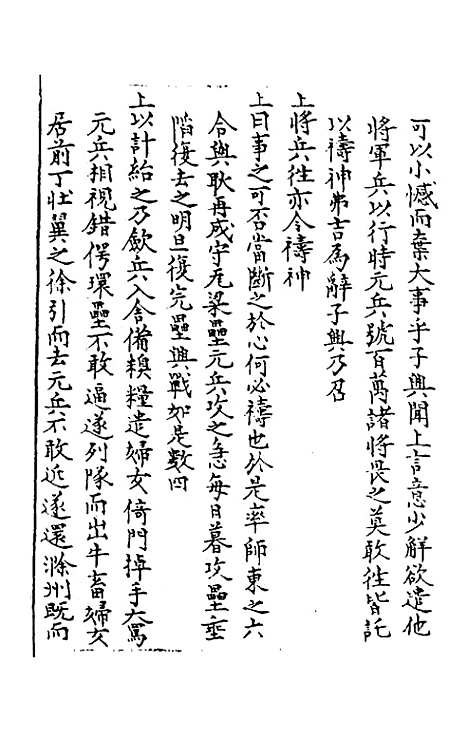 可以小憾而棄大事乎子興聞上言意少解欲遣他
將軍兵以行時元兵號百萬諸將畏之莫敢往皆託
以禱神弗吉為辭子興乃召
上將兵往亦令禱神
上曰事之可否當斷之於心何必禱也於是率師東之六
合與耿再成守瓦梁壘元兵攻之急每日暮攻壘垂
陷復去之明旦復完壘與戰如是數四
上以計紿之乃歛兵入舍備糗糧遣婦女倚門掉手大罵
元兵相視錯愕環壘不敢逼遂列隊而出牛畜婦女
居前丁壯翼之徐引而去元兵不敢近遂還滁州既而